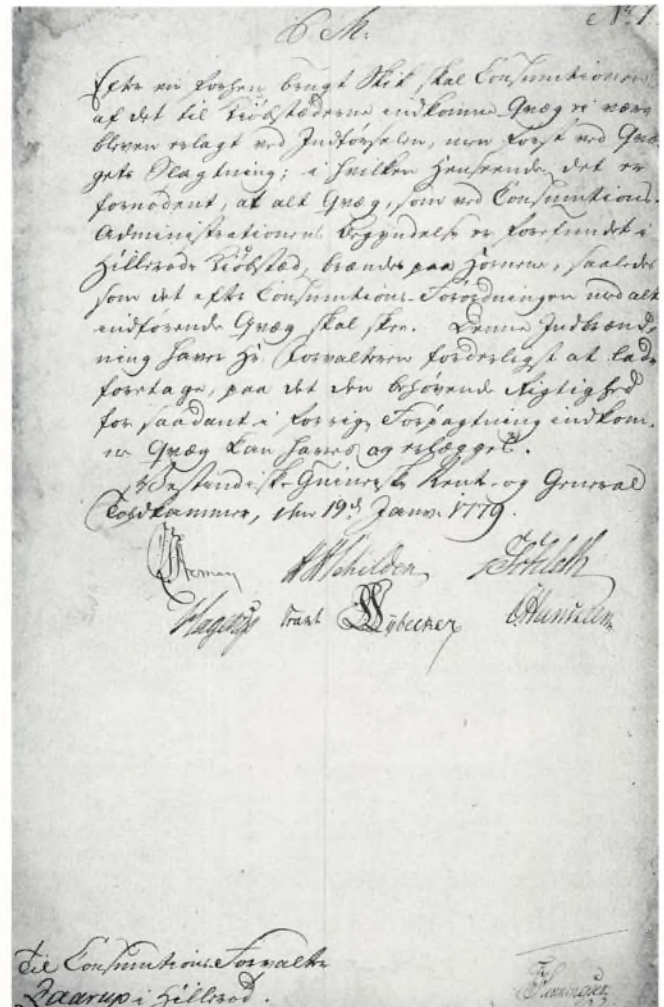 P. M.
No 1.
Efter en forhen brugt Skik skal Consumtionen
af det til Kiöbstæderne indkomne Qvæg ei være
bleven erlagt ved Indförselen, men först ved Qvæ-
gets Slagtning; i hvilken Henseende det er
fornödent, at alt Qvæg, som ved Consumtions-
Administrationens Begyndelse er forefundet i
Hilleröds Kiöbstæd, brændes paa Hornene, saaledes
som det efter Consumtions-Forordningen med alt
indförende Qvæg skal skee. Denne Indbrænd-
ning haver Hr. Forvalteren forderligst at lade
foretage, paa det den behövende Rigtighed
for saadant i forrige Forpagtning indkom-
ne Qvæg kan haves og erlægges.
Vestindisk-Guineisk Rente- og General
Toldkammer, den 19d Janv. 1779.
Schilden
Hagerup Lybecker
Til Consumtions-Forvalter
Zaarup i Hilleröd.